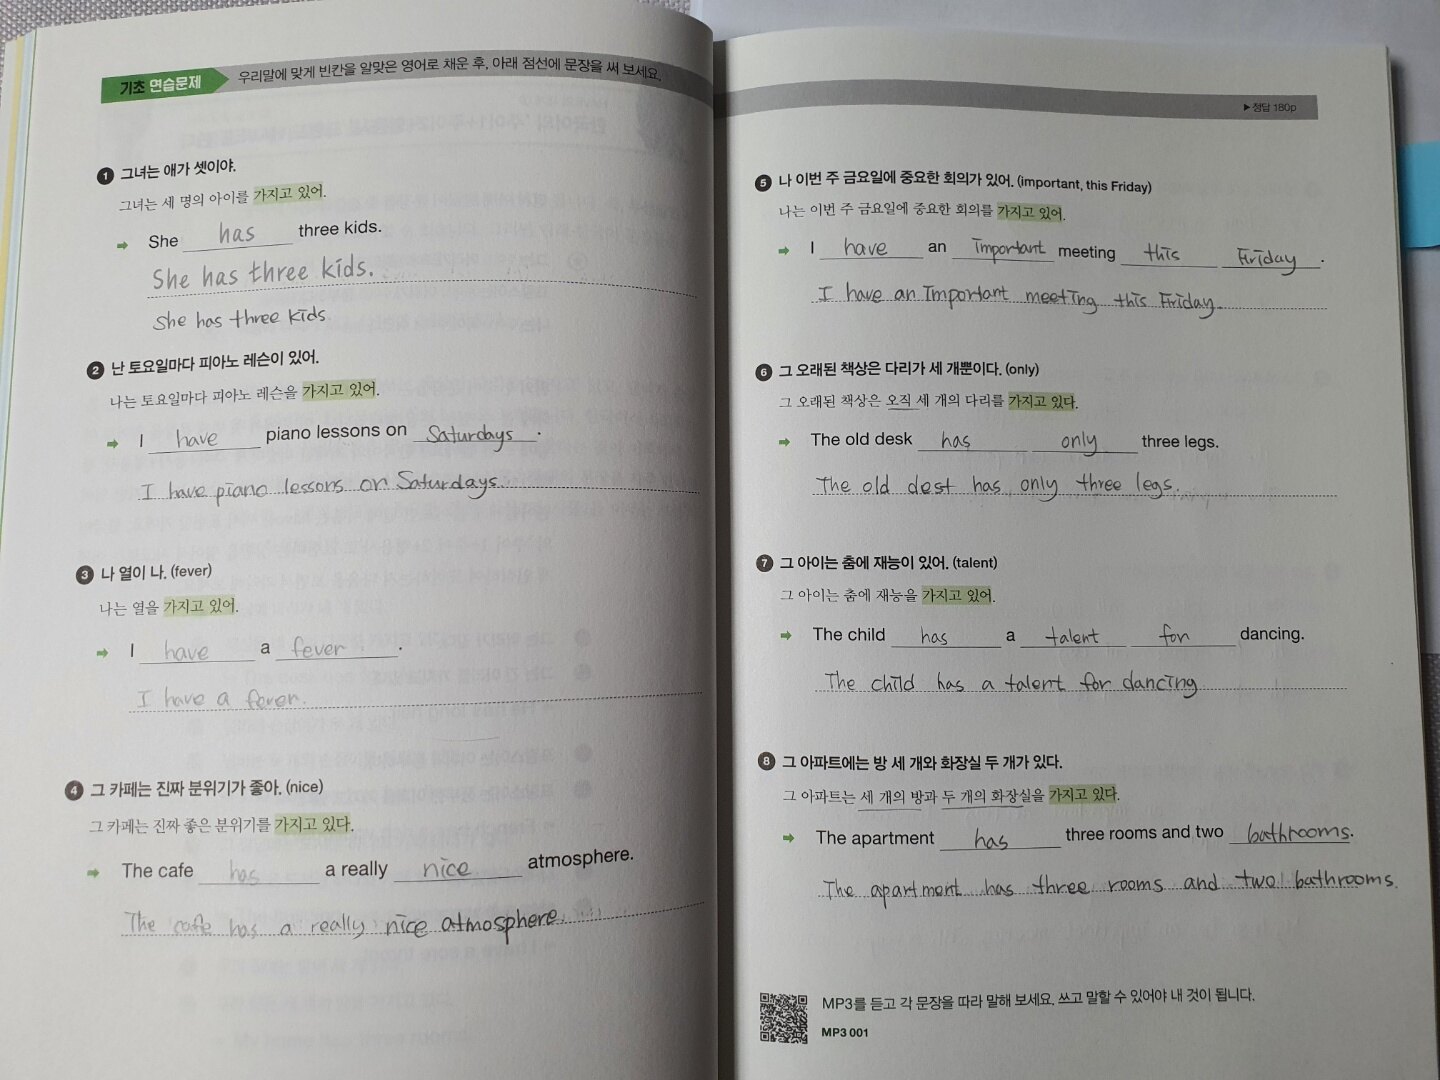 기초 연습문제 우리말에 맞게 빈칸을 알맞은 영어로 채운 후, 아래 점선에 문장을 써 보세요.
1 그녀는 애가 셋이야.
그녀는 세 명의 아이를 가지고 있어.
She has three kids.
She has three kids.
She has three kids.
2 난 토요일마다 피아노 레슨이 있어.
나는 토요일마다 피아노 레슨을 가지고 있어.
I have piano lessons on Saturdays.
I have piano lessons on Saturdays.
3 나 열이 나. (fever)
나는 열을 가지고 있어.
I have a fever.
I have a fever.
4 그 카페는 진짜 분위기가 좋아. (nice)
그 카페는 진짜 좋은 분위기를 가지고 있다.
The cafe has a really nice atmosphere.
The cafe has a really nice atmosphere.
▶정답 180p
5 나 이번 주 금요일에 중요한 회의가 있어. (important, this Friday)
나는 이번 주 금요일에 중요한 회의를 가지고 있어.
I have an important meeting this Friday.
I have an important meeting this Friday.
6 그 오래된 책상은 다리가 세 개뿐이다. (only)
그 오래된 책상은 오직 세 개의 다리를 가지고 있다.
The old desk has only three legs.
The old dest has only three legs.
7 그 아이는 춤에 재능이 있어. (talent)
그 아이는 춤에 재능을 가지고 있어.
The child has a talent for dancing.
The child has a talent for dancing
8 그 아파트에는 방 세 개와 화장실 두 개가 있다.
그 아파트는 세 개의 방과 두 개의 화장실을 가지고 있다.
The apartment has three rooms and two bathrooms.
The apartment has three rooms and two bathrooms.
MP3를 듣고 각 문장을 따라 말해 보세요. 쓰고 말할 수 있어야 내 것이 됩니다.
MP3 001